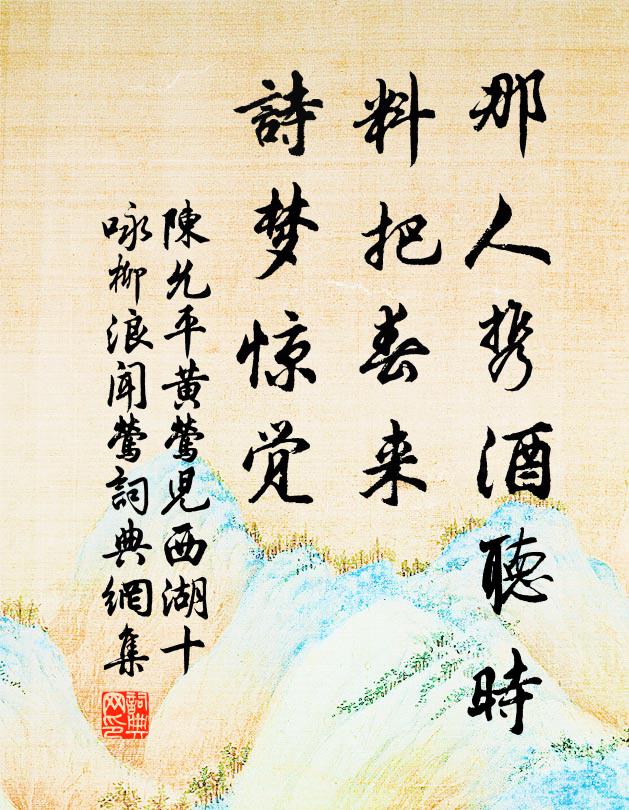 那人携酒聽時
料把春来
詩梦惊觉
陳允平黄鶯兒西湖十
咏柳浪闻鶯詞典網集
詞典
网印